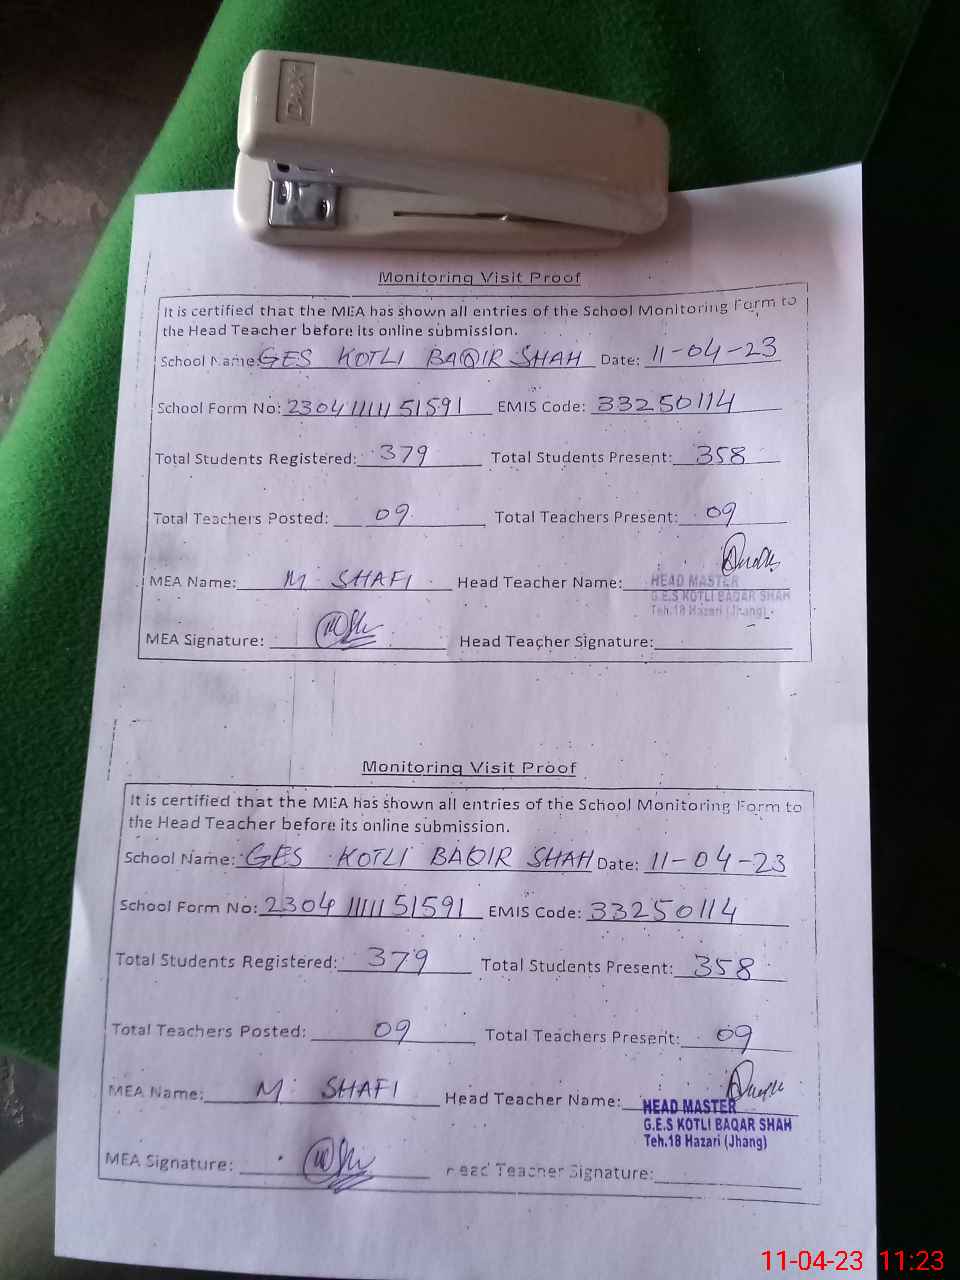 Dux
Monitoring Visit Proof
It is certified that the MEA has shown all entries of the School Monitoring Form to
the Head Teacher before its online submission.
School Name: GES KOTLI BAQIR SHAH Date: 11-04-23
School Form No: 23041111151591 EMIS Code: 33250114
Total Students Registered: 379 Total Students Present: 358
Total Teachers Posted: 09 Total Teachers Present: 09
MEA Name: M. SHAFI Head Teacher Name:
HEAD MASTER
G.E.S KOTLI BAQAR SHAH
Teh.18 Hazari (Jhang)
MEA Signature: Head Teacher Signature:
Monitoring Visit Proof
It is certified that the MEA has shown all entries of the School Monitoring Form to
the Head Teacher before its online submission.
School Name: GES KOTLI BAQIR SHAH Date: 11-04-23
School Form No: 23041111151591 EMIS Code: 33250114
Total Students Registered: 379 Total Students Present: 358
Total Teachers Posted: 09 Total Teachers Present: 09
MEA Name: M. SHAFI Head Teacher Name:
HEAD MASTER
G.E.S KOTLI BAQAR SHAH
Teh.18 Hazari (Jhang)
MEA Signature: Head Teacher Signature:
11-04-23 11:23